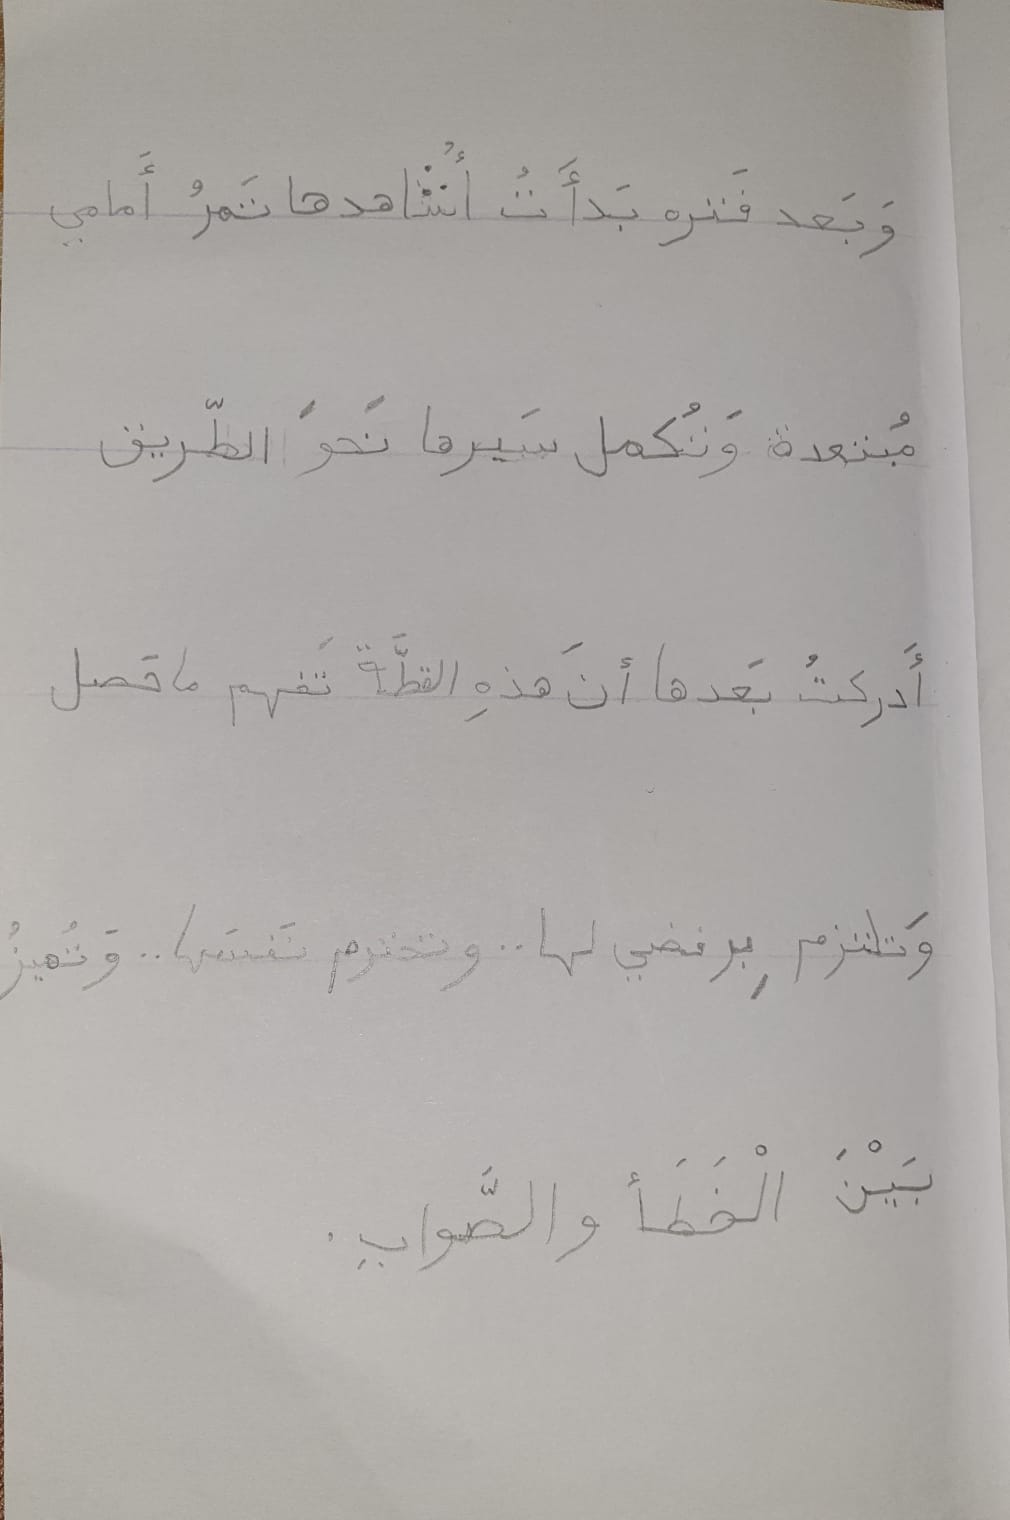 وَبَعد فَتره بَدأَتُ أُشاهدها تَمرُ أَمامي
مُبتعدة وَتُكمل سَيرها نَحوَ الطّريق
أَدركتُ بَعدها أنَ هَذهِ القطَّة تَفهم ما حَصل
وَتلتزم بِرفضي لها.. وتحترم نَفسَها.. وَتُميزُ
بَيْنَ الْخَطَأ والصَّوابِ.